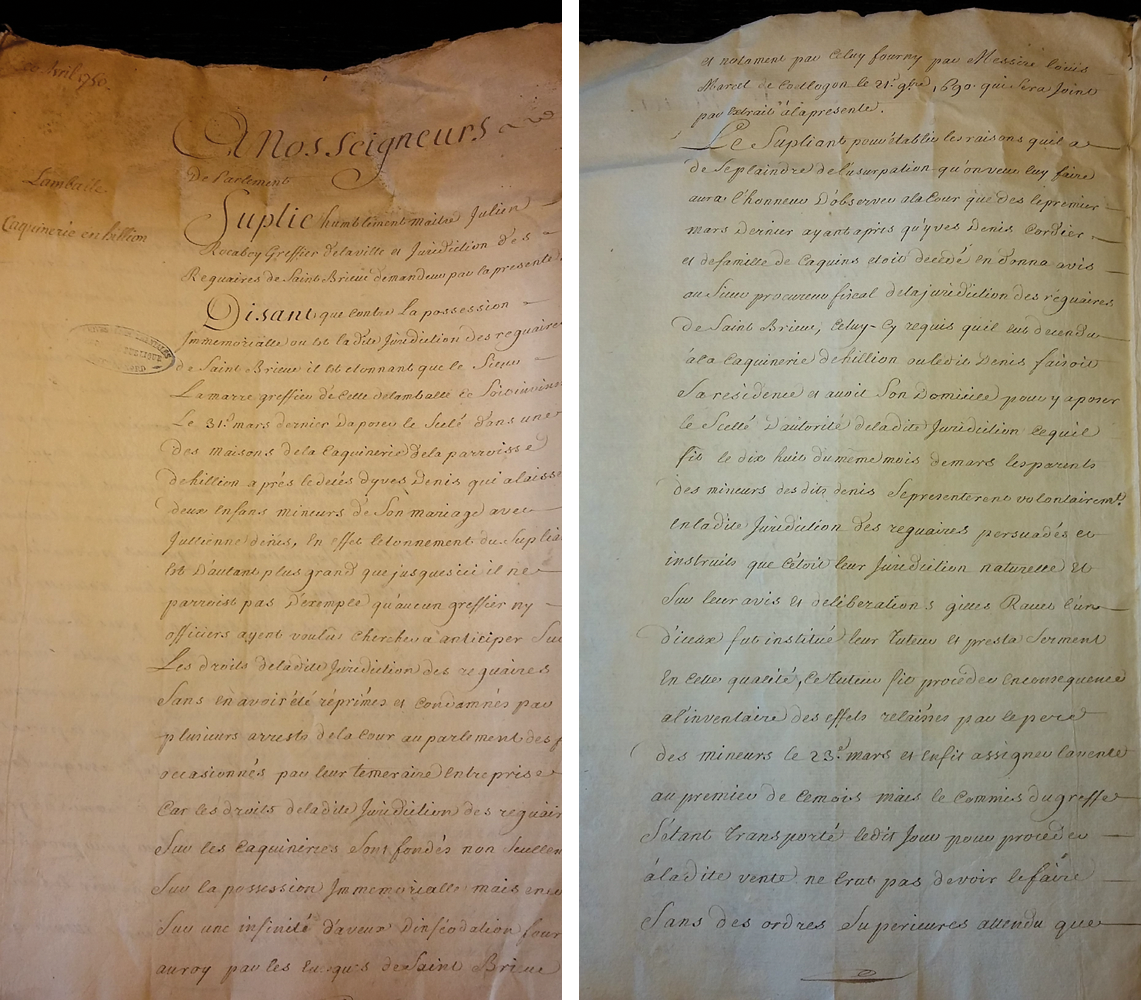 20 Avril 1750.
Lamballe
Caquinerie en hillion
A Nos Seigneurs
De Parlement
Suplie humblement maitre Julien
Rocabey Greffier delaville et Juridiction des
Reguaires de Saint Brieuc demandeur par la presente
Disant que contre La possession
Jmmemorialle ou est ladite Juridiction des reguaires
de Saint Brieuc il est etonnant que le Sieur
Lamarre greffier de Celle delamballe se Soit
Le 31e. mars dernier Daposer le Scelé dans une
des maisons dela Caquinerie dela parroisse
dehillion aprés ledecés dyves Denis qui alaisse
deux enfans mineurs de Son mariage avec
Jullienne denis, En effet letonnement du Suplia
Est D'autant plus grand que jusques ici il ne
parroist pas D'exemple qu'aucun greffier ny
officiers ayent voulu chercher a anticiper Sur
Les droits deladite Juridiction des reguaires
Sans en avoir été réprimés et Condamnés par
plusieurs arrests dela Cour au parlement des
occasionnés par leur temeraire Entreprise
Car les droits deladite Juridiction des reguair
Sur les Caquineries Sont fondés non Seullem
Sur la possession Jmmemorialle mais enco
Sur une infinité d'aveux D'inféodation four
au roy par les Evesques de Saint Brieuc
et notament par Celuy fourny par Messire Louis
Marcel de Coetlogon le 21e. 9bre 1690. qui Sera Joint
par Extrait àlapresente.
Le Supliant pour établir les raisons quil a
de Seplaindre del'usurpation qu'on veut luy faire
aura l'honneur D'observer ala Cour que des lepremier
mars Dernier ayant apris qu'yves Denis Cordier
et defamille de Caquins etoit decedé en Donna avis
au Sieur procureur fiscal delajuridiction des réguaires
de Saint Brieuc, Celuy-Cy requis quil eut decendu
àla Caquinerie dehillion ou ledit Denis faisoit
Sa résidence et avoit Son Domicile pour y aposer
le Scellé D'autorité deladite Juridiction Cequil
fit le dix huit dumeme mois de mars les parents
des mineurs desdits denis Sepresenterent volontairemt.
en ladite Juridiction des reguaires persuadés et
instruits que C'étoit leur Juridiction naturelle Et
Sur leur avis Et deliberations gilles Rauel L'un
D'iceux fut institué leur tuteur et presta Serment
En Cette qualité, Ce tuteur fit procéder enconsequence
a l'inventaire des effets relaissés par le pere
des mineurs le 23e. mars et Enfit assigner lavente
au premier de Cemois mais le Commis du greffe
S'étant Transporté ledit Jour pour procéder
àladite vente ne Crut pas devoir le faire
Sans des ordres Superieures attendu que